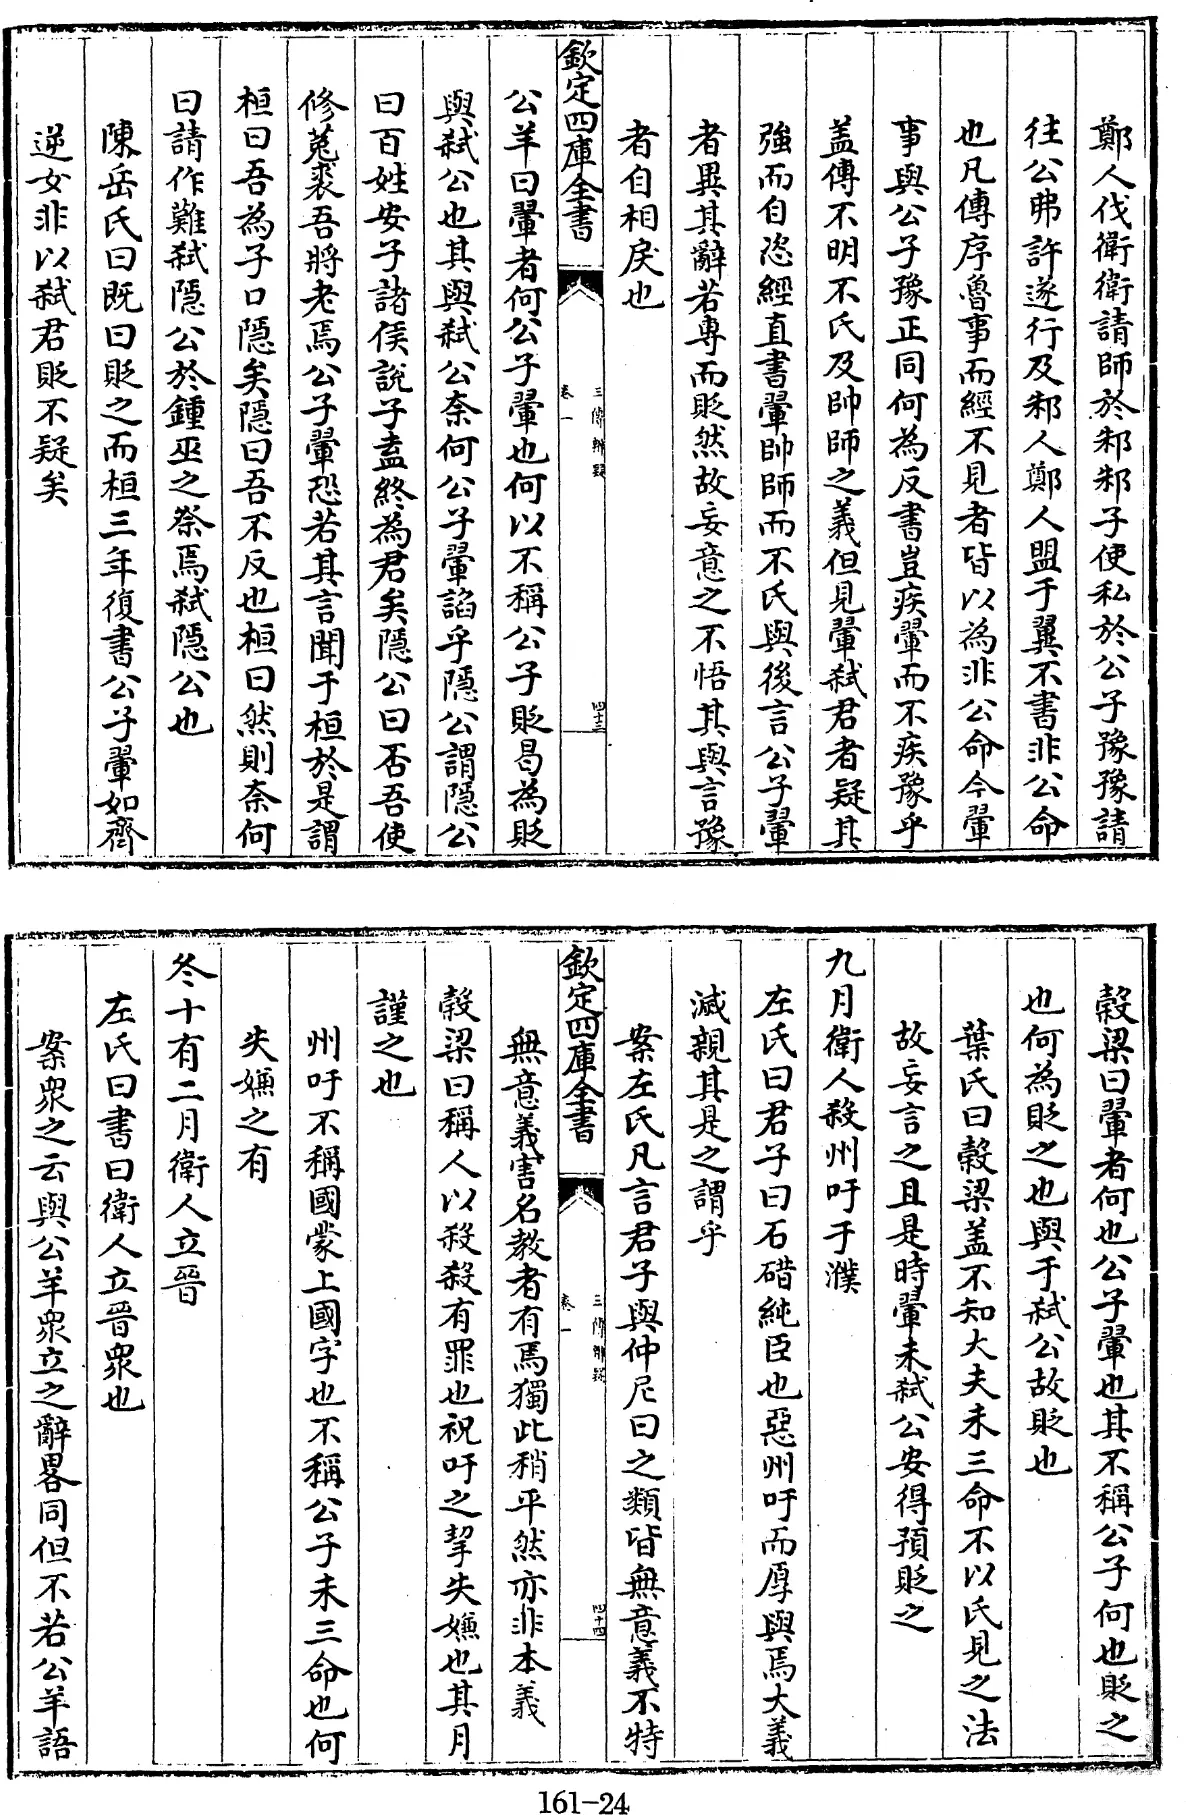 鄭人伐衛衛請師於邾邾子使私於公子豫豫請
往公弗許遂行及邾人鄭人盟于翼不書非公命
也凡傳序魯事而經不見者皆以為非公命今翬
事與公子豫正同何為反書豈疾翬而不疾豫乎
盖傳不明不氏及帥師之義但見翬弑君者疑其
強而自恣經直書翬帥師而不氏與後言公子翬
者異其辭若専而貶然故妄意之不悟其與言豫
者自相戾也
欽定四庫全書
三傳辨疑
卷一
四十三
公羊曰翬者何公子翬也何以不稱公子貶曷為貶
與弑公也其與弑公奈何公子翬諂乎隱公謂隱公
曰百姓安子諸侯說子盍終為君矣隱公曰否吾使
修菟裘吾將老焉公子翬恐若其言聞于桓於是謂
桓曰吾為子口隱矣隱曰吾不反也桓曰然則奈何
曰請作難弑隱公於鍾巫之祭焉弑隱公也
陳岳氏曰既曰貶之而桓三年復書公子翬如齊
逆女非以弑君貶不疑矣
榖梁曰翬者何也公子翬也其不稱公子何也貶之
也何為貶之也與于弑公故貶也
葉氏曰榖梁盖不知大夫未三命不以氏見之法
故妄言之且是時翬未弑公安得預貶之
九月衛人殺州吁于濮
左氏曰君子曰石碏純臣也惡州吁而厚與焉大義
滅親其是之謂乎
案左氏凡言君子與仲尼曰之類皆無意義不特
欽定四庫全書
三傳辨疑
卷一
四十四
無意義害名教者有焉獨此稍平然亦非本義
榖梁曰稱人以殺殺有罪也祝吁之挈失嫌也其月
謹之也
州吁不稱國蒙上國字也不稱公子未三命也何
失嫌之有
冬十有二月衛人立晉
左氏曰書曰衛人立晉衆也
案衆之云與公羊衆立之辭畧同但不若公羊語
161-24